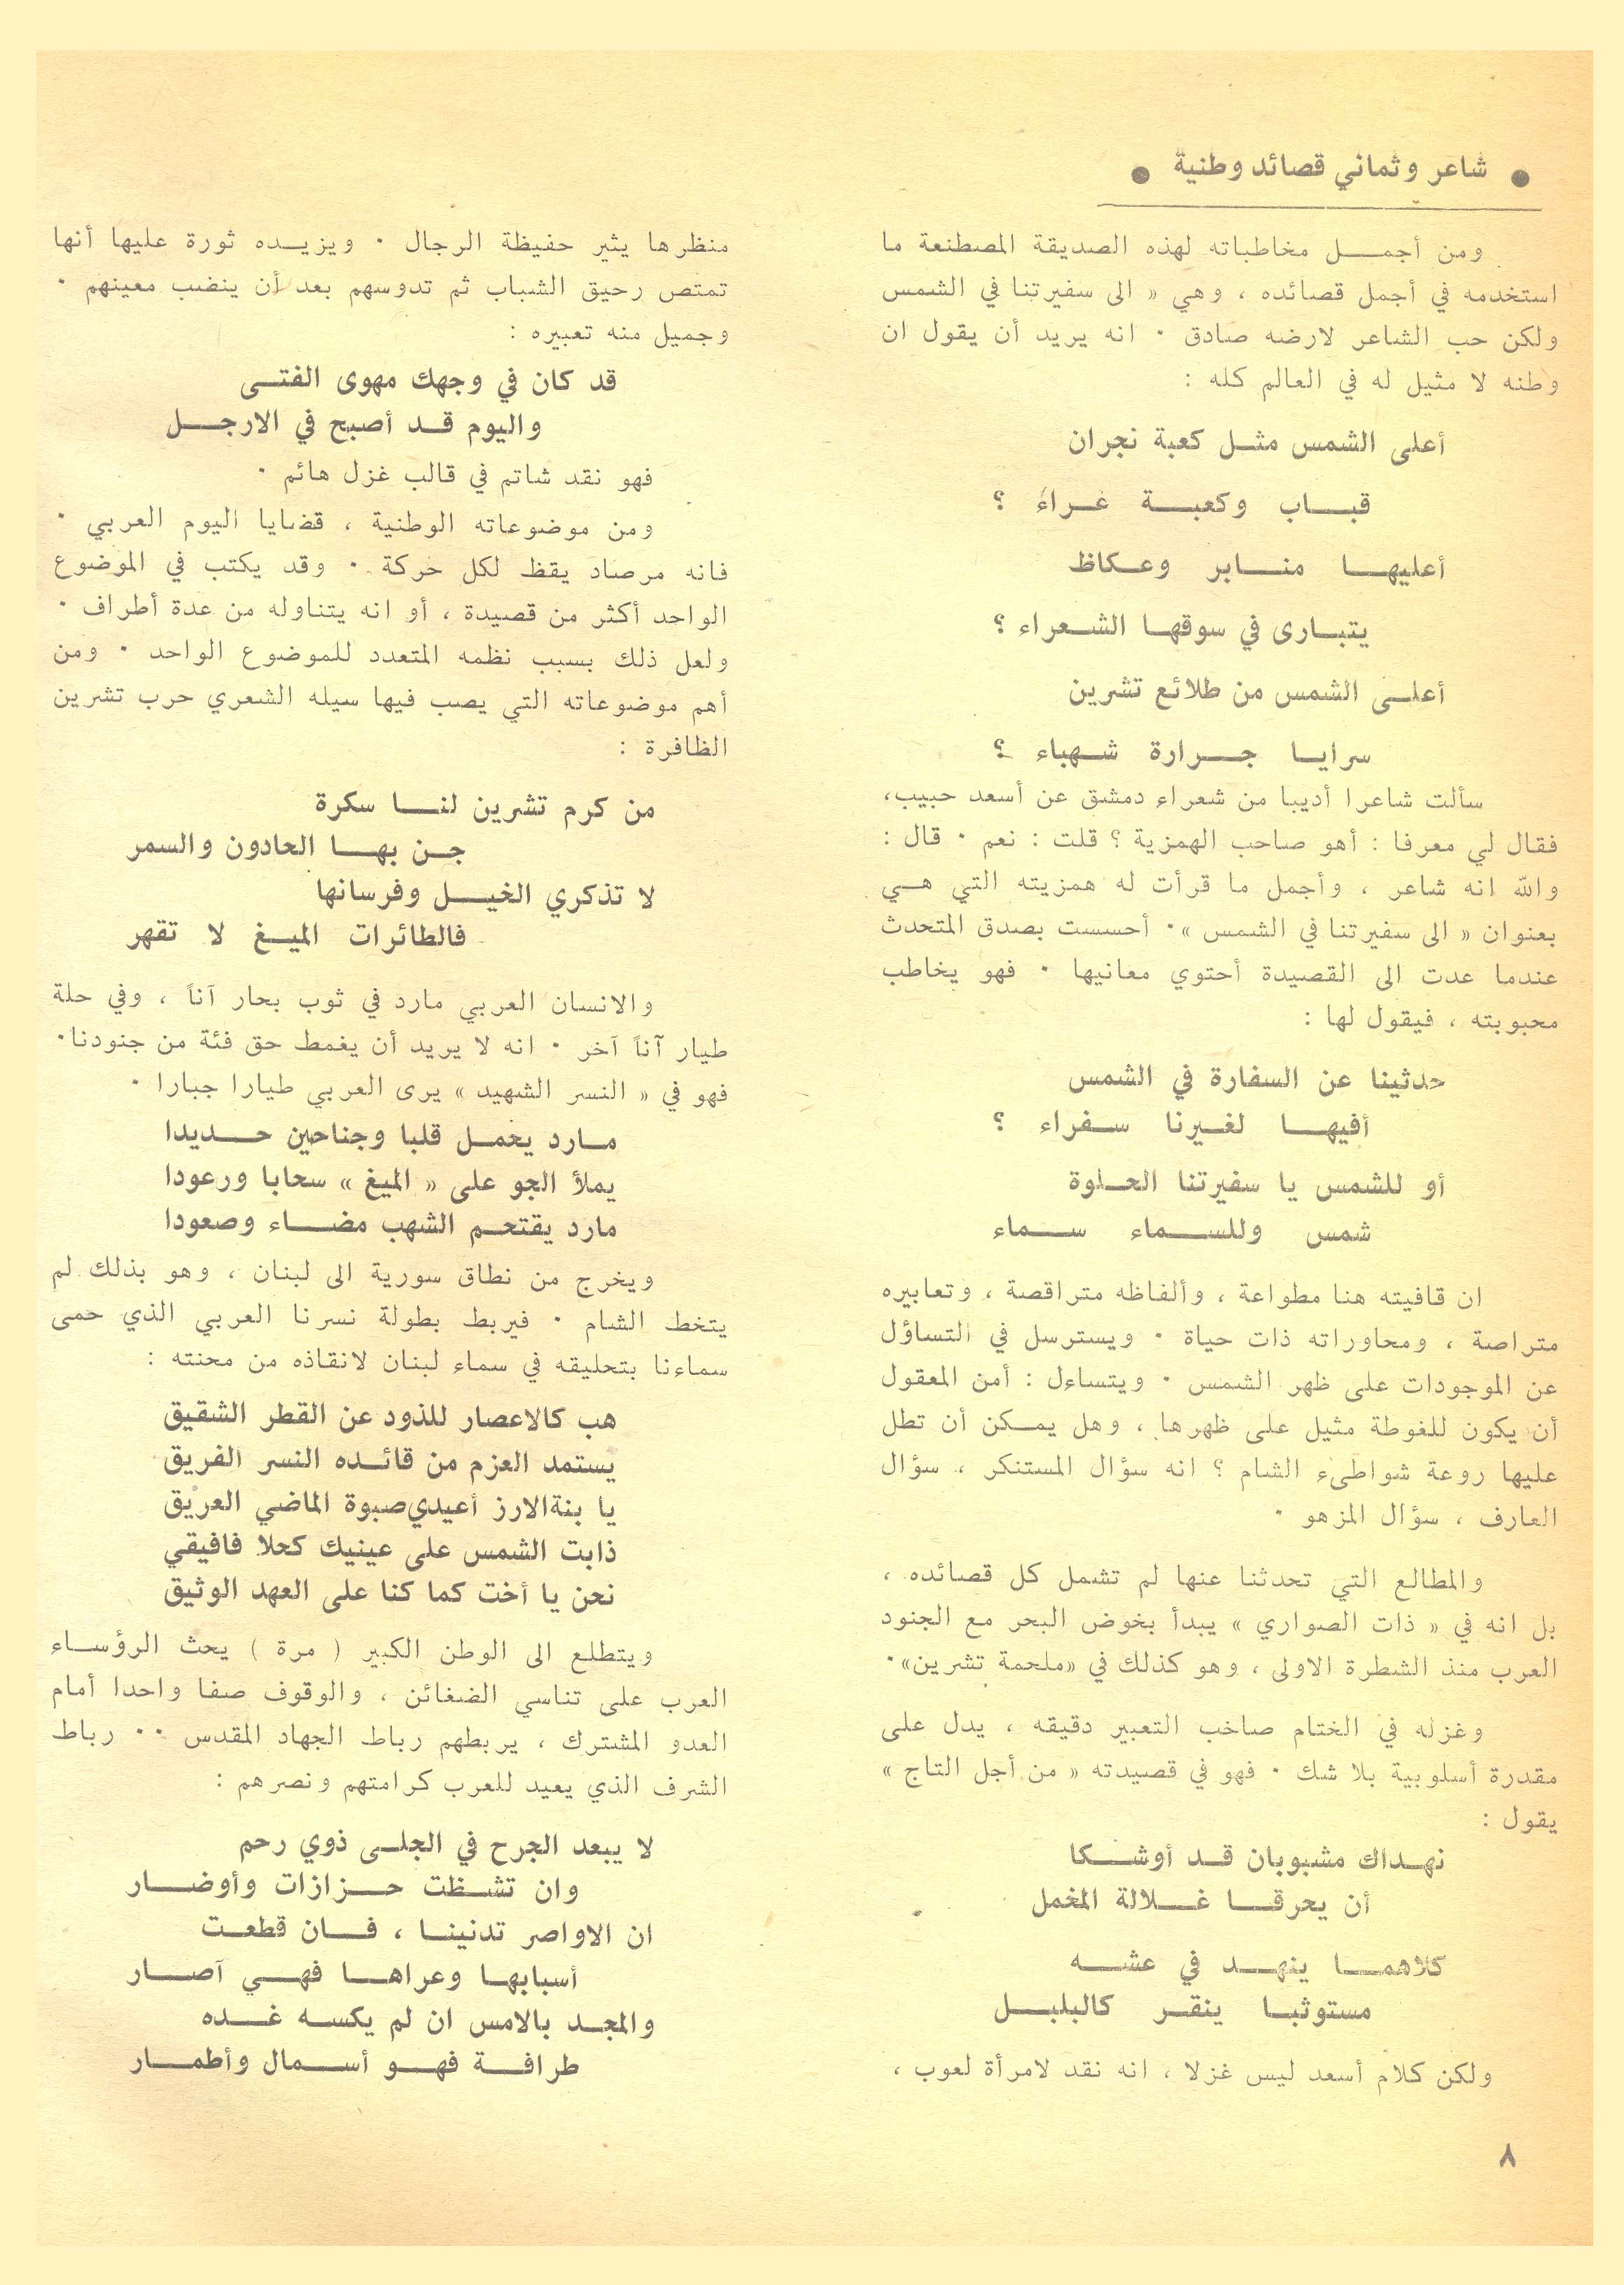 ● شاعر وثماني قصائد وطنية ●
ومن أجمـــل مخاطباته لهذه الصديقة المصطنعة ما
استخدمه في أجمل قصائده ، وهي « الى سفيرتنا في الشمس
ولكن حب الشاعر لارضه صادق ٠ انه يريد أن يقول ان
وطنه لا مثيل له في العالم كله :
أعلى الشمس مثـل كعبة نجران
قبـــاب وكعبـــة غـراء ؟
أعليهـــا منـــابر وعـكاظ
يتبـارى في سوقهـا الشـعراء ؟
أعلـى الشمس من طلائع تشرين
سرايـا جـــرارة شـهباء ؟
سألت شاعرا أديبا من شعراء دمشق عن أسعد حبيب،
فقال لي معرفا : أهو صاحب الهمزية ؟ قلت : نعم ٠ قال :
والله انه شاعر ، وأجمل ما قرأت له همزيته التي هـي
بعنوان « الى سفيرتنا في الشمس »٠ أحسست بصدق المتحدث
عندما عدت الى القصيدة أحتوي معانيها ٠ فهو يخاطب
محبوبته ، فيقول لها :
حدثينا عن السفارة في الشمس
أفيهـــا لغـيرنا سـفراء ؟
أو للشمس يا سفيرتنا الحـلوة
شمس وللســـماء ســـماء
ان قافيته هنا مطواعة ، وألفاظه متراقصة ، وتعابيره
متراصة ، ومحاوراته ذات حياة ٠ ويسترسل في التساؤل
عن الموجودات على ظهر الشمس ٠ ويتساءل : أمن المعقول
أن يكون للغوطة مثيل على ظهرها ، وهل يمـكن أن تطل
عليها روعة شواطىء الشام ؟ انه سؤال المستنكر ، سؤال
العارف ، سؤال المزهو ٠
والمطالع التي تحدثنا عنها لم تشمل كل قصائده ،
بل انه في « ذات الصواري » يبدأ بخوض البحر مع الجنود
العرب منذ الشطرة الاولى ، وهو كذلك في «ملحمة تشرين»٠
وغزله في الختام صاخب التعبير دقيقه ، يدل على
مقدرة أسلوبية بلا شك ٠ فهو في قصيدته « من أجل التاج »
يقول :
نهـداك مشبوبان قـد أوشـــكا
أن يحرقـــا غـــلالة المخمل
كلاهمـــا ينهـــد في عشـــه
مستوثبـا ينقـر كالبلبـــل
ولكن كلام أسعد ليس غزلا ، انه نقد لامرأة لعوب ،
منظرها يثير حفيظة الرجال ٠ ويزيـــده ثورة عليها أنها
تمتص رحيق الشباب ثم تدوسهم بعد أن ينضب معينهم ٠
وجميل منه تعبيره :
قد كان في وجهك مهوى الفتـى
واليوم قـد أصبح في الارجـــل
فهو نقد شاتم في قالب غزل هائم ٠
ومن موضوعاته الوطنية ، قضايا اليوم العربي ٠
فانه مرصاد يقظ لكل حركة ٠ وقد يكتب في الموضوع
الواحد أكثر من قصيدة ، أو انه يتناوله من عدة أطراف ٠
ولعل ذلك بسبب نظمه المتعدد للموضوع الواحد ٠ ومن
أهم موضوعاته التي يصب فيها سيله الشعري حرب تشرين
الظافرة :
من كرم تشرين لنـــا سكرة
جـن بهـــا الحادون والسمر
لا تذكري الخيـــل وفرسانها
فالطائرات الميـغ لا تقهر
والانسان العربي مارد في ثوب بحار آناً ، وفي حلة
طيار آناً آخر ٠ انه لا يريد أن يغمط حق فئة من جنودنا٠
فهو في « النسر الشهيد » يرى العربي طيارا جبارا ٠
مـارد يحمـل قلبا وجناحين حـــديدا
يملأ الجو على « الميغ » سحابا ورعودا
مارد يقتحـم الشهب مضـــاء وصعودا
ويخرج من نطاق سورية الى لبنان ، وهو بذلك لم
يتخط الشام ٠ فيربط بطولة نسرنا العربي الذي حمى
سماءنا بتحليقه في سماء لبنان لانقاذه من محنته :
هب كالاعصار للذود عن القطر الشقيق
يستمد العزم من قائـده النسر الفريق
يا بنةالارز أعيديصبوة الماضي العريق
ذابت الشمس على عينيك كحلا فافيقي
نحن يا أخت كما كنا على العهد الوثيق
ويتطلع الى الوطن الكبير ( مرة ) يحث الرؤسـاء
العرب على تناسي الضغائن ، والوقوف صفا واحدا أمام
العدو المشترك ، يربطهم رباط الجهاد المقدس ٠٠ رباط
الشرف الذي يعيد للعرب كرامتهم ونصرهم :
لا يبعد الجرح في الجلـى ذوي رحم
وان تشـظت حـــزازات وأوضـــار
ان الاواصر تدنينـا ، فـــان قطعـت
أسبابهـا وعراهـــا فهـــي آصـــار
والمجـد بالامس ان لم يكسـه غـــده
طرافـــة فهـــو أســـمال وأطمـــار
٨